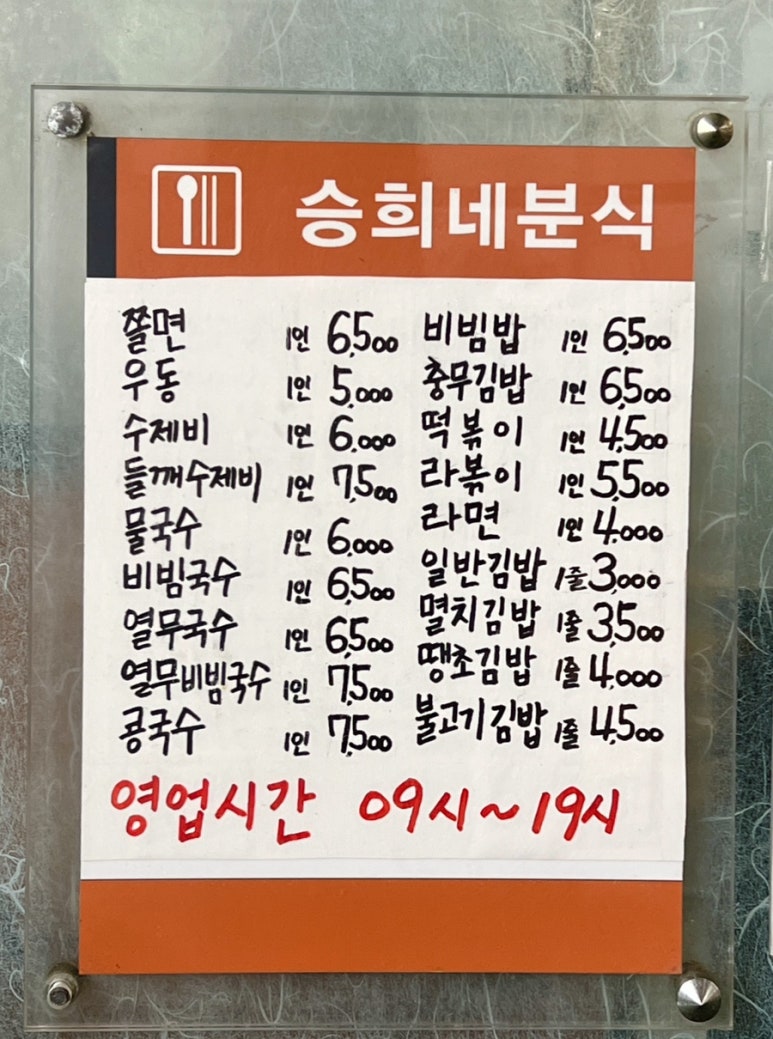 승희네분식
쫄면 1인 6,500
우동 1인 5,000
수제비 1인 6,000
들깨수제비 1인 7,500
물국수 1인 6,000
비빔국수 1인 6,500
열무국수 1인 6,500
열무비빔국수 1인 7,500
콩국수 1인 7,500
비빔밥 1인 6,500
충무김밥 1인 6,500
떡볶이 1인 4,500
라볶이 1인 5,500
라면 1인 4,000
일반김밥 1줄 3,000
멸치김밥 1줄 3,500
땡초김밥 1줄 4,000
불고기김밥 1줄 4,500
영업시간 09시~19시